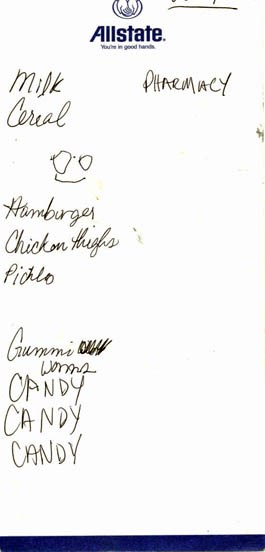 Allstate.
You're in good hands.
Milk
PHARMACY
Cereal
Hamburger
Chicken thighs
Gummi
worms
CANDY
CANDY
CANDY